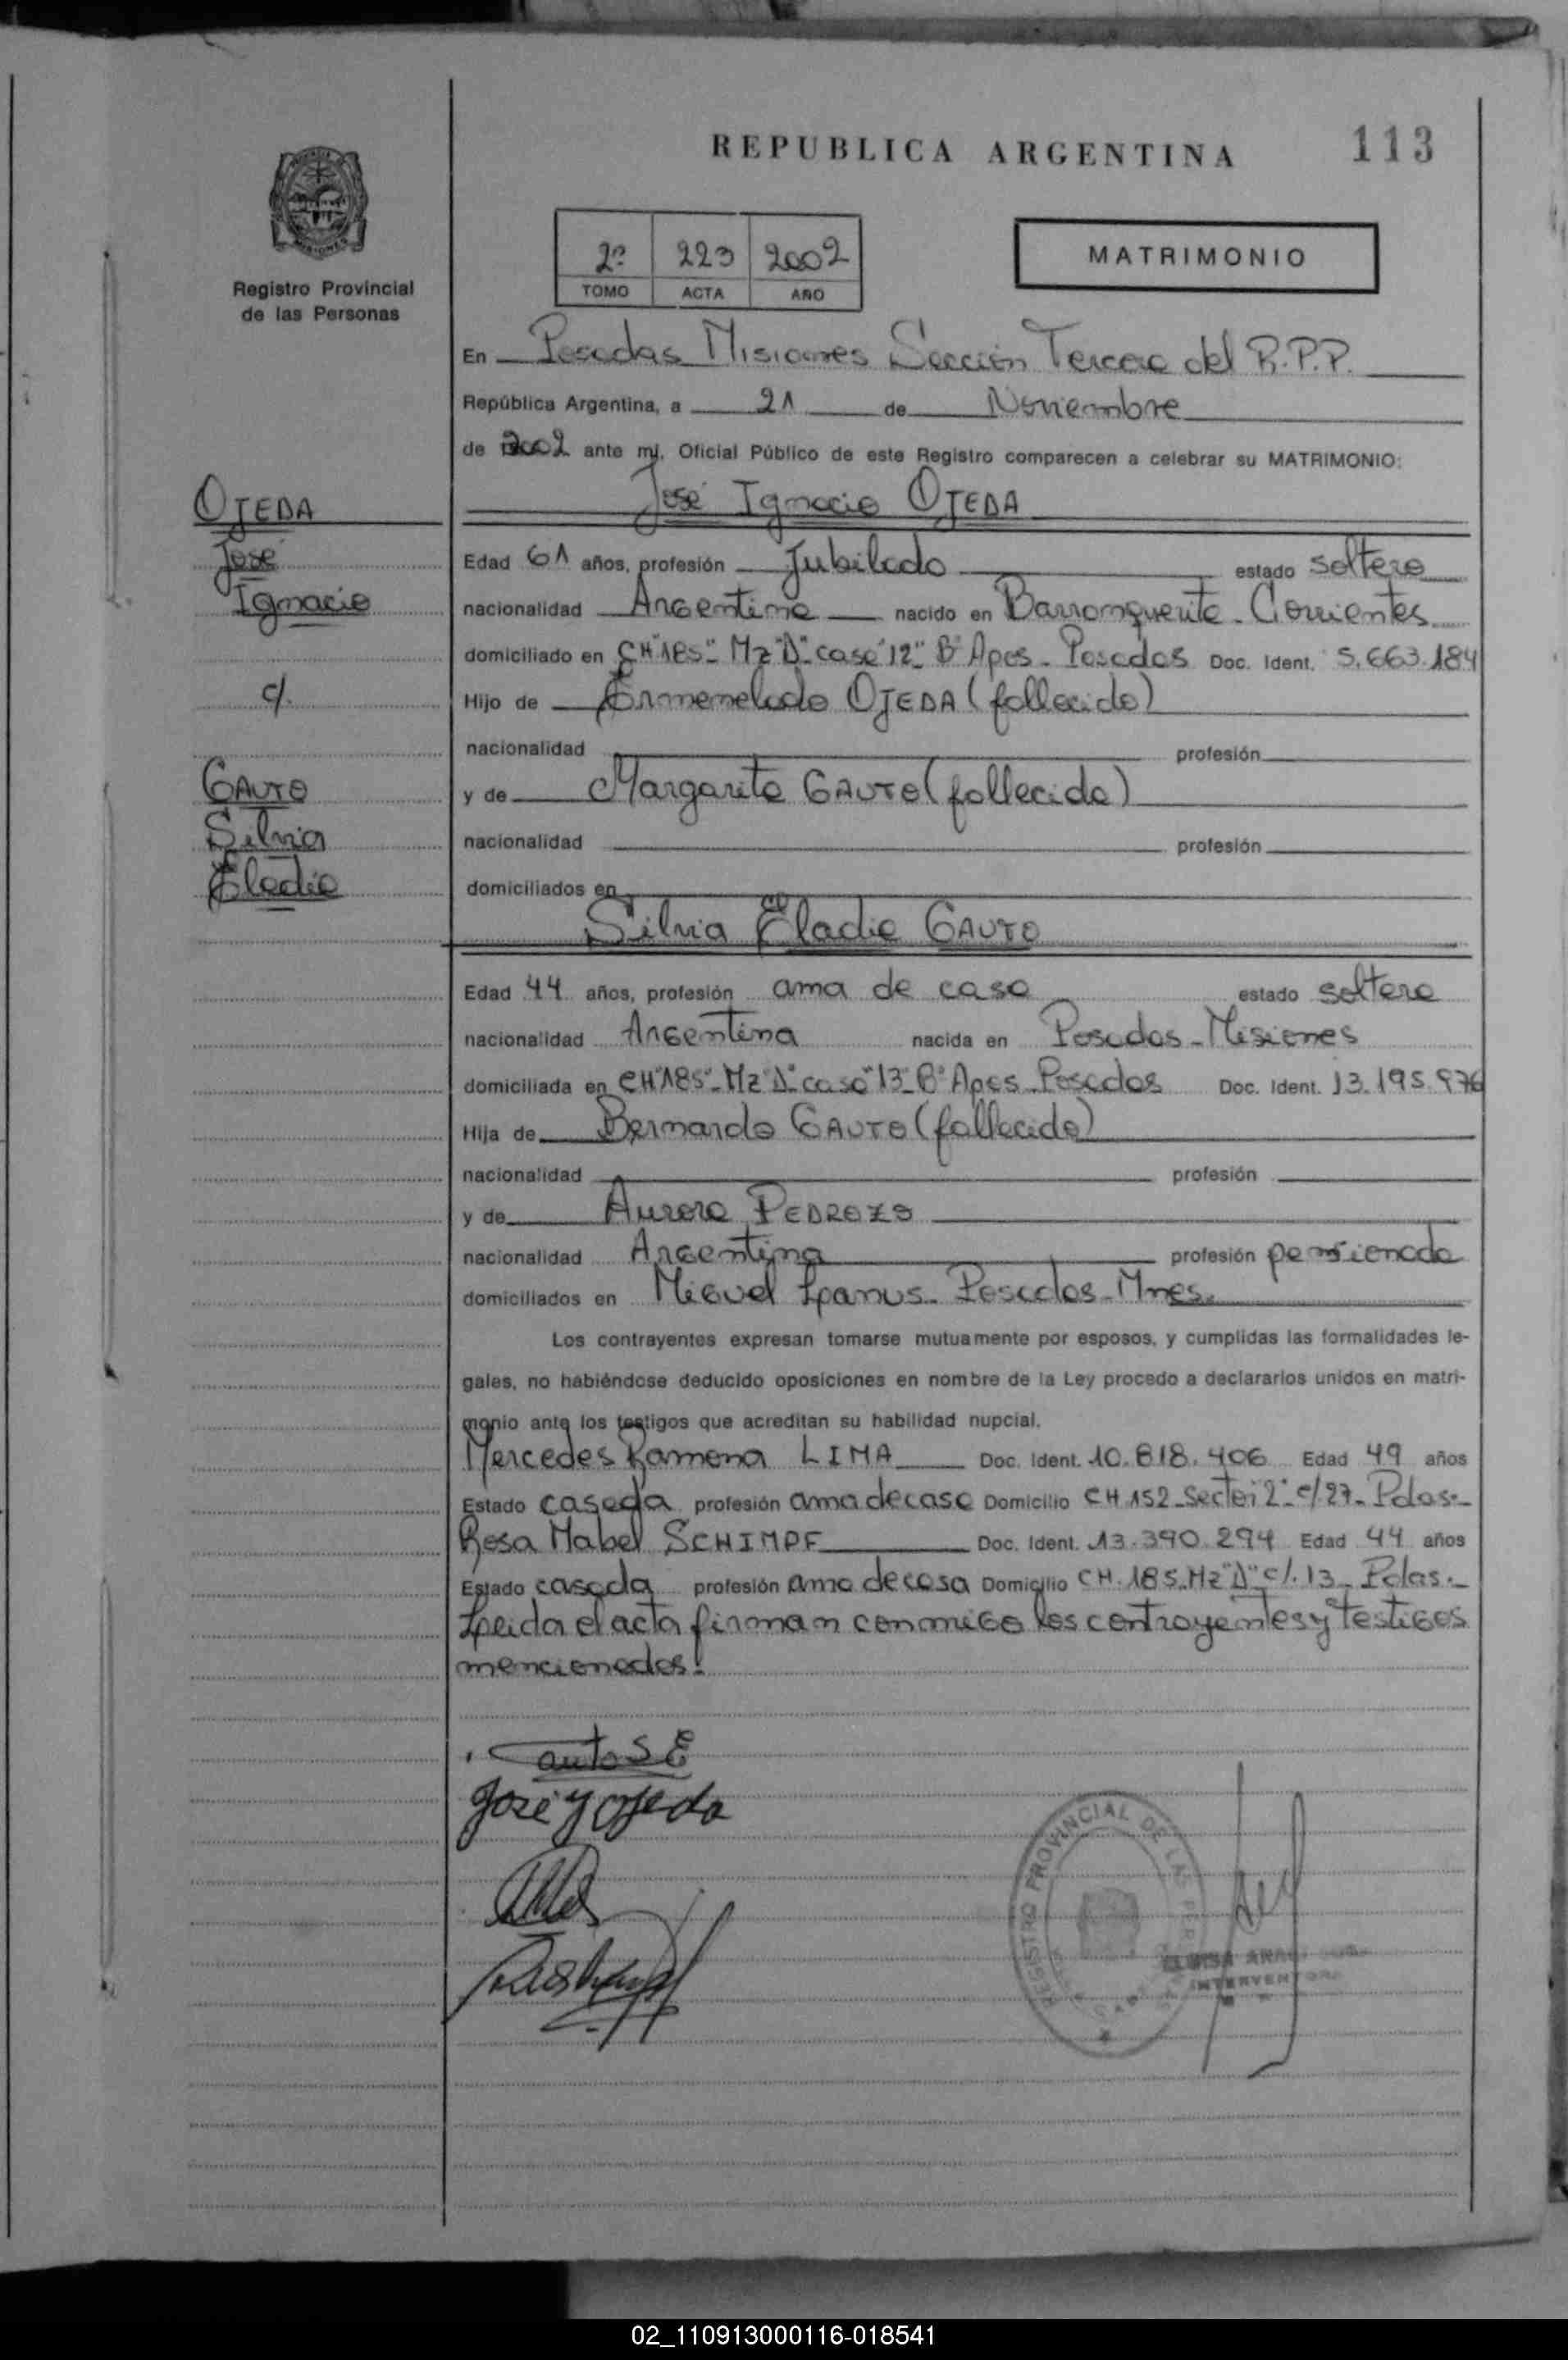 REPUBLICA ARGENTINA
113
Registro Provincial
de las Personas
2º 223 2002
TOMO ACTA AÑO
MATRIMONIO
En Posadas Misiones Sección Tercera del R.P.P.
República Argentina, a 21 de Noviembre
de 2002 ante mí, Oficial Público de este Registro comparecen a celebrar su MATRIMONIO:
José Ignacio OJEDA
OJEDA
José
Ignacio
c/.
GAUTO
Silvia
Eladia
Edad 61 años, profesión Jubilado estado soltero
nacionalidad Argentina nacido en Barranquerita - Corrientes
domiciliado en CH"185"- Mz"D"- casa"12"- Bº Apos - Posadas Doc. Ident. 5.663.184
Hijo de OJEDA (fallecido)
nacionalidad profesión
y de Margarita GAUTO (fallecida)
nacionalidad profesión
domiciliados en
Silvia Eladia GAUTO
Edad 44 años, profesión ama de casa estado soltera
nacionalidad Argentina nacida en Posadas - Misiones
domiciliada en CH"185"- Mz"D"- casa"13"- Bº Apos - Posadas Doc. Ident. 13.195.976
Hija de Bernardo GAUTO (fallecido)
nacionalidad profesión
y de Aurora PEDROZO
nacionalidad Argentina profesión pensionada
domiciliados en Miguel Lanus - Posadas - Mnes.
Los contrayentes expresan tomarse mutuamente por esposos, y cumplidas las formalidades le-
gales, no habiéndose deducido oposiciones en nombre de la Ley procedo a declararlos unidos en matri-
monio ante los testigos que acreditan su habilidad nupcial.
Mercedes Ramona LIMA Doc. Ident. 10.818.406 Edad 49 años
Estado casada profesión ama de casa Domicilio CH 152 - Sector "2" - c/27 - Pdas.-
Rosa Mabel SCHIMPF Doc. Ident. 13.390.294 Edad 44 años
Estado casada profesión ama de casa Domicilio CH. 185 - Mz"D" c/. 13 - Pdas.-
Leida el acta firman conmigo los contrayentes y testigos
mencionados.
Gauto S E
José Y Ojeda
REGISTRO PROVINCIAL DE LAS
INTERVENTORA
02_110913000116-018541